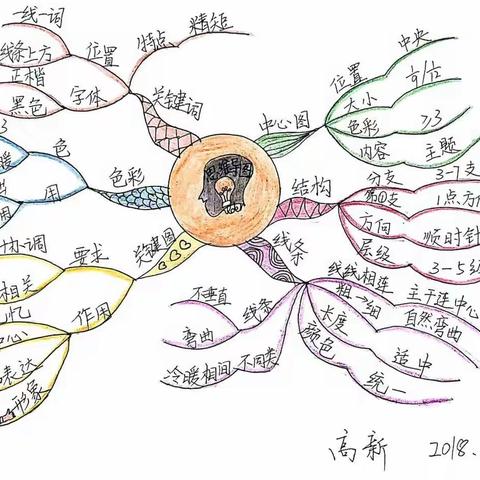 思维导图
中心图
位置
中央
大小
1/9
色彩
≥3
内容
主题
结构
分支
3-7支
第①支
1点方向
方向
顺时针
层级
3-5级
线条
线线相连
主干连中心
粗→细
自然弯曲
长度
适中
颜色
统一
线条
不垂直
弯曲
不同类
冷暖相间
关键图
要求
协调
相关
作用
忆
中心
表达
形象
色彩
色
3
暖
用
用
关键词
特点
精短
位置
一线一词
线条上方
字体
正楷
黑色
高新 2018.